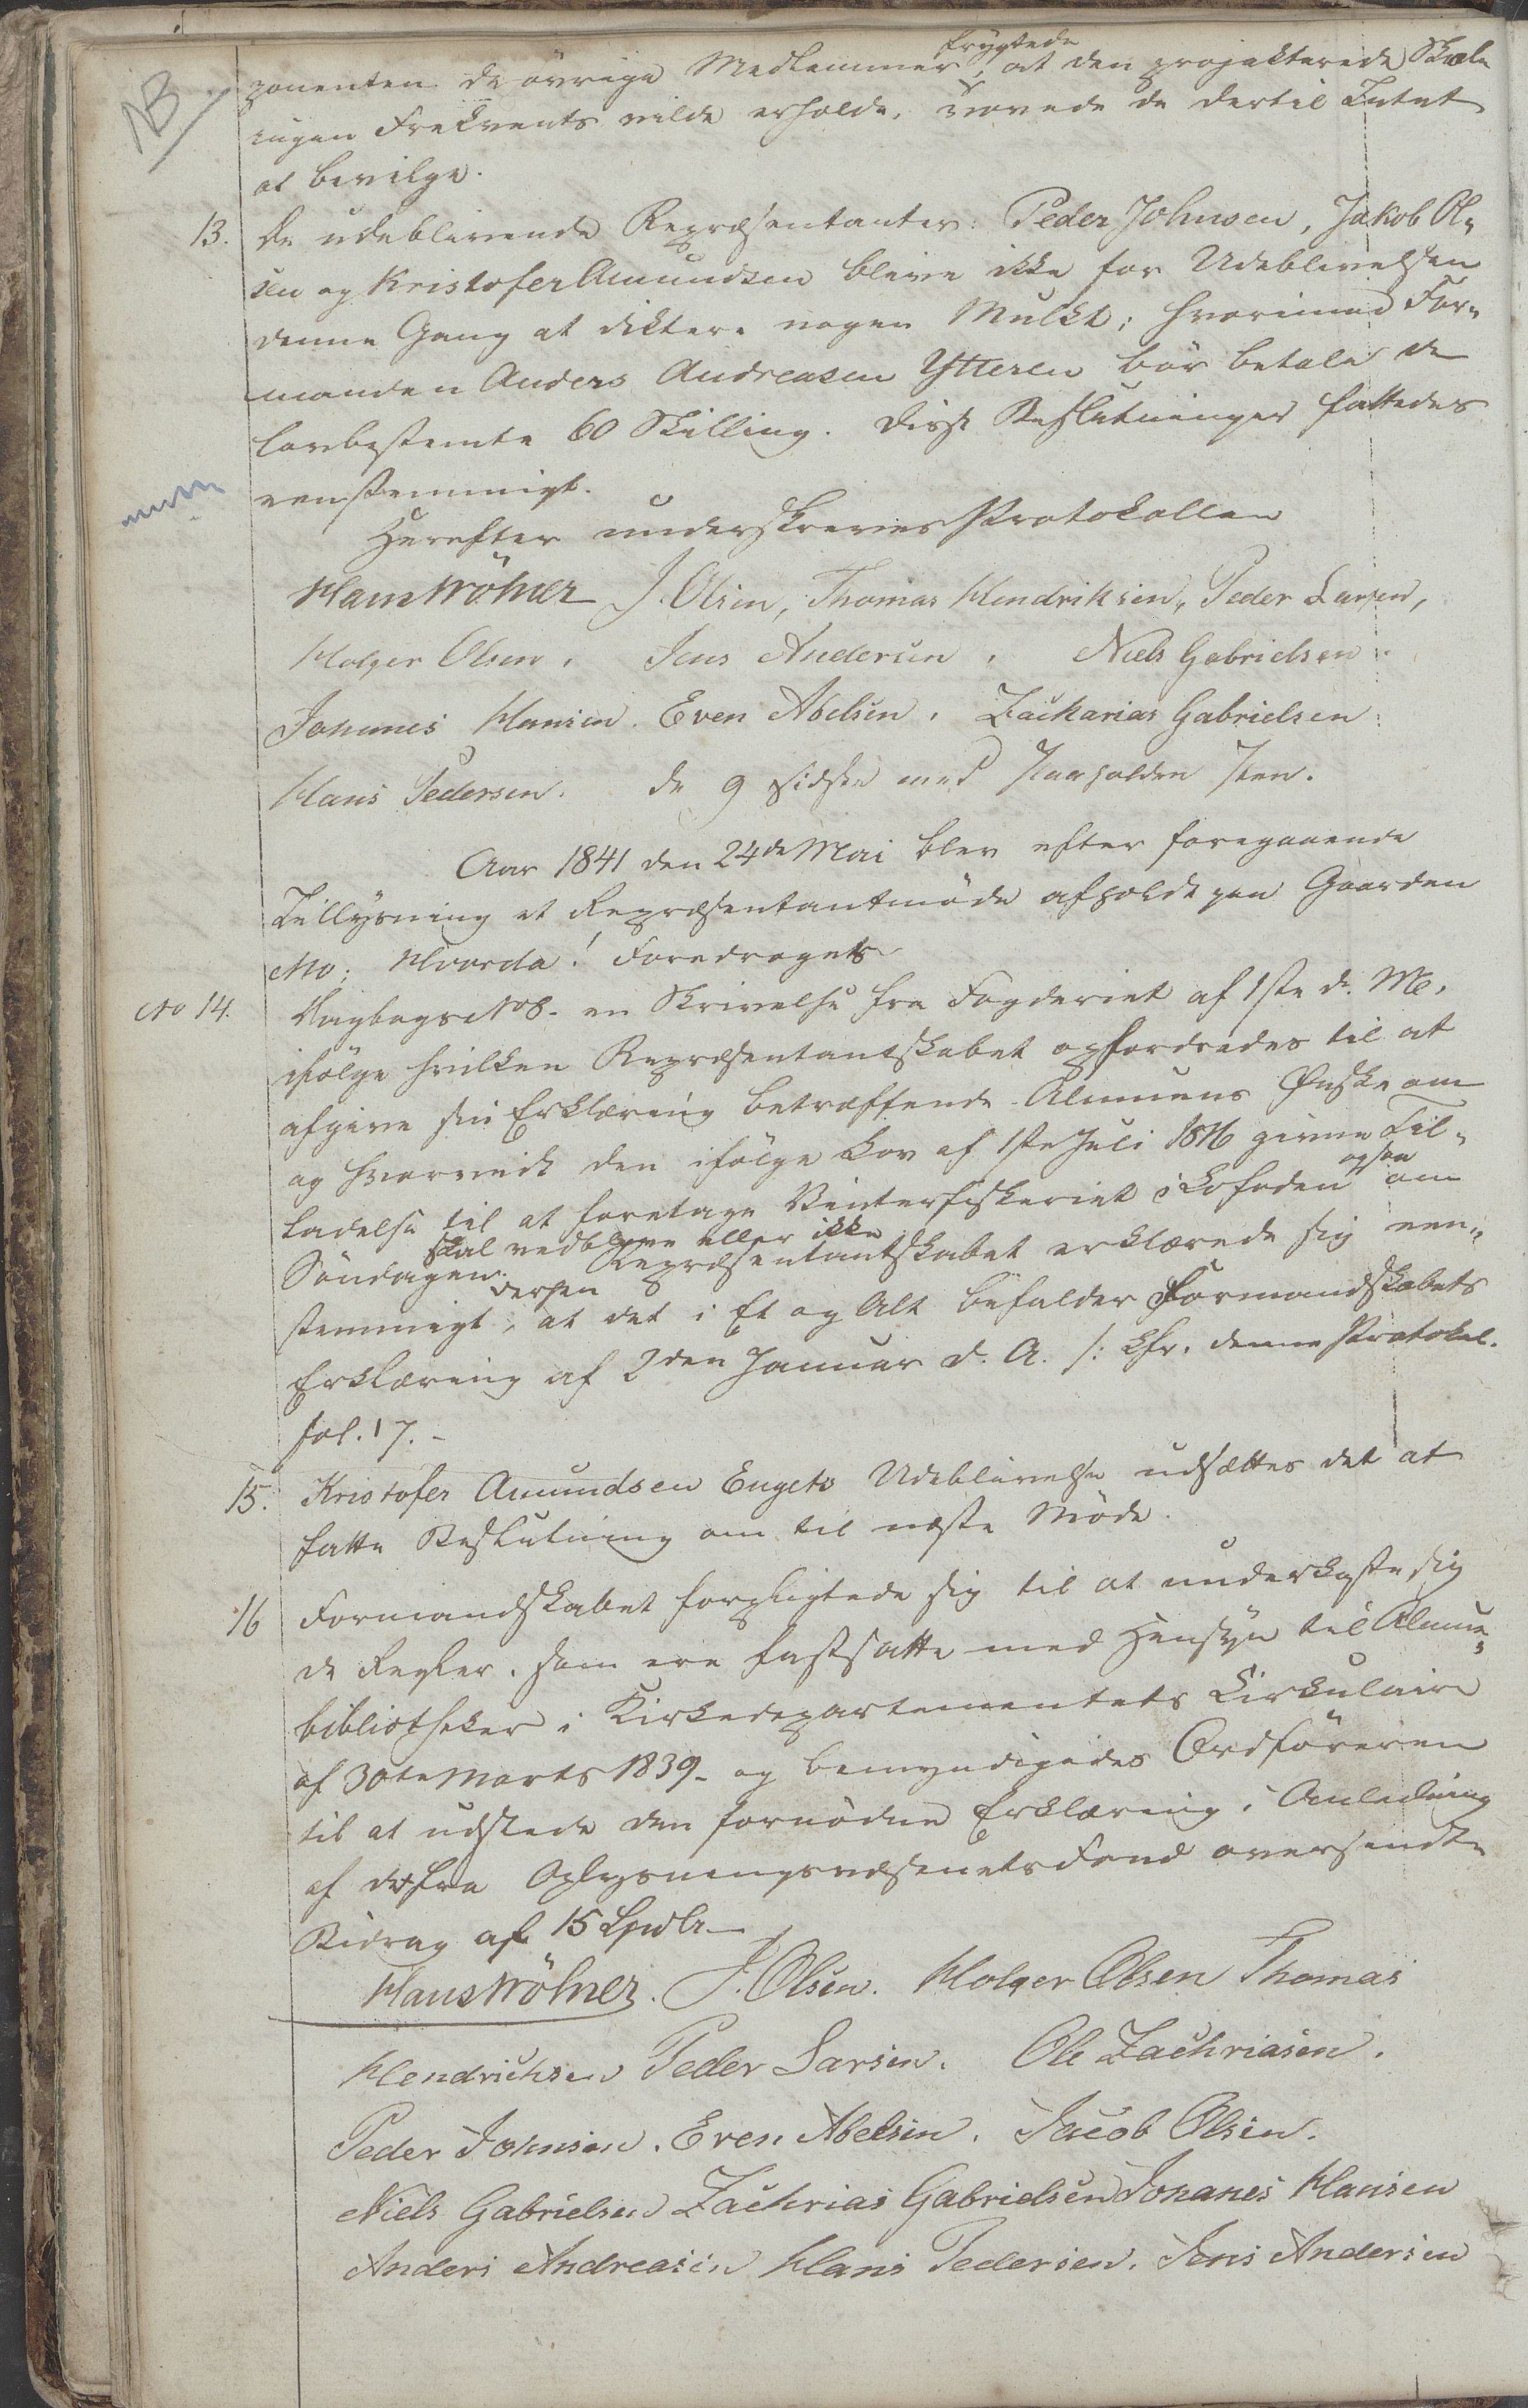 NB
ponenten de øvrige Medlemmer frygtede, at den projekterede Skole
ingen Frekvents vilde erholde, vovede de dertil Intet
at bevilge.
13. De udeblivende Repræsentanter: Peder Johnsen, Jakob Ol„
sen og Kristofer Amundsen bleve ikke for Udeblivelsen
denne Gang at diktere nogen Mulkt; hvorimod For„
manden Anders Andreasen Ytteren bör betale de
lovbestemte 60 Skilling. Disse Beslutninger fattedes
eenstemmigt.
Herefter underskreves Protokollen
Hans Wölner J. Olsen, Thomas Hendriksen, Peder Larsen,
Holger Olsen, Jens Andersen, Niels Gabrielsen.
Johannes Hansen. Even Abelsen, Zackarias Gabrielsen
Hans Pedersen. de 9 sidste med paaholden Pen.
Aar 1841 den 24de Mai blev efter foregaaende
Tillysning et Repræsentantmöde afholdt paa Gaarden
Mo; Hvorda! Foredroges
No 14. Dagbogs No 8. en Skrivelse fra Fogderiet af 1ste d. M.,
ifölge hvilken Repræsentantskabet opfordredes til at
afgive sin Erklæring betræffende Almuens Ønske om
og hvorvidt den ifölge Lov af 1ste Juli 1816 givne Til„
ladelse til at foretage Vinterfiskeriet i Lofoden ogsaa om
Söndagen skal vedblive eller ikke. Repræsentantskabet erklærede sig een„
stemmigt derhen, at det i Et og Alt bifalder Formandskabets
Erklæring af 2den Januar d. A. /: Cfr. denne Protokol.
fol. 17. -
15. Kristofer Amundsen Engets Udeblivelse udsættes det at
fatte Beslutning om til næste Möde.
16 Formandskabet forpligtede sig til at underkaste sig
de Regler, som ere fastsatte med Hensyn til Almue„
bibliotheker i Kirkedepartementets Cirkulaire
af 30te Marts 1839 - og bemyndigedes Ordföreren
til at udstede den fornödne Erklæring i Anledning
af det fra Oplysningsvæsenets Fond oversendte
Bidrag af 15 Spdlr -
Hans Wölner. J. Olsen. Holger Olsen Thomas
Hendrichsen Peder Larsen. Ole Zachriasen.
Peder Johnsen. Even Abelsen. Jacob Olsen.
Niels Gabrielsen Zachrias Gabrielsen Johanes Hansen
Anders Andreasen Hans Pedersen. Jens Andersen